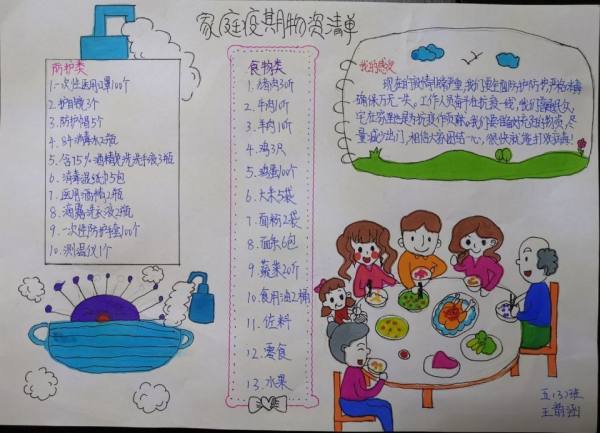 家庭疫期物资清单
防护类
1.一次性医用口罩100个
2.护目镜3个
3.防护帽5个
4.84消毒水2瓶
5.含75%酒精免洗洗手液3瓶
6.消毒湿纸巾5包
7.医用酒精2瓶
8.滴露洗衣液2瓶
9.一次性防护手套100个
10.测温仪1个
食物类
1.猪肉30斤
2.牛肉10斤
3.羊肉10斤
4.鸡3只
5.鸡蛋100个
6.大米5袋
7.面粉2袋
8.面条6包
9.蔬菜20斤
10.食用油2桶
11.佐料
12.零食
13.水果
我的感受
现在的疫情非常严重,我们要全面防护防护严格消毒
确保万无一失。工作人员奋斗在抗疫一线,我们普通民众,
宅在家里也是为抗疫作贡献。我们要准备好充足的物资,尽
量减少出门,相信大家团结一心,很快就能打败病毒!
五(3)班
王韵涵